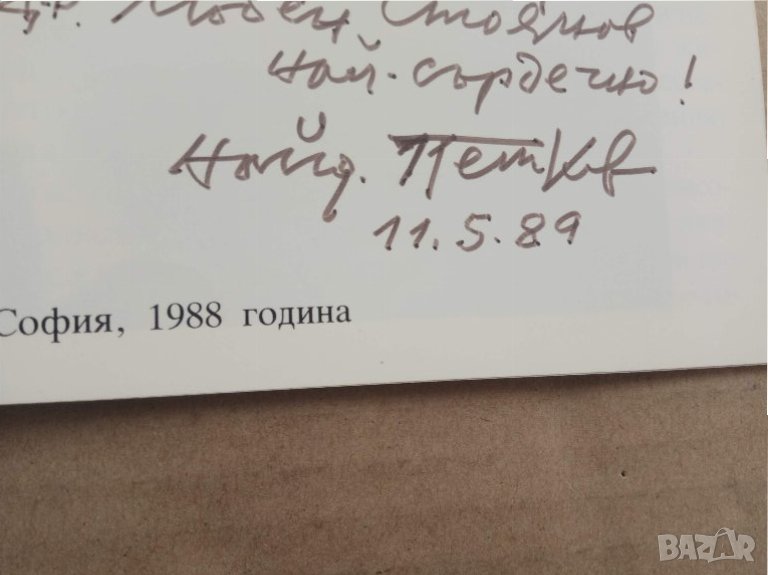 Стоянов
най-сърдечно!
Найд. Петков
11.5.89
София, 1988 година
BAZAR